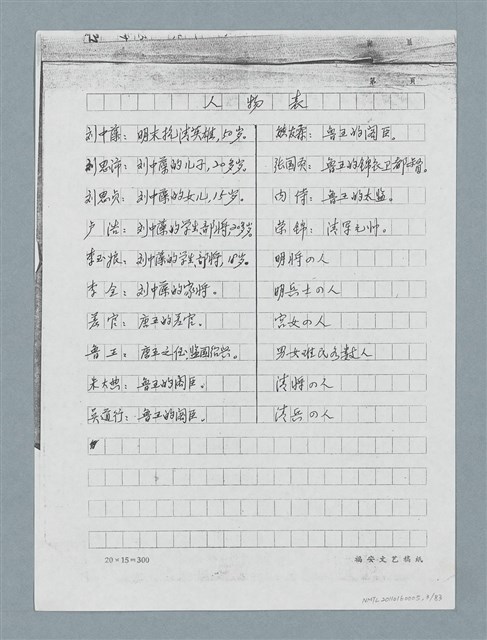 第 頁
人物表
刘中藻：明末抗清英雄，50岁。
刘思沛：刘中藻的儿子，20多岁。
刘思贞：刘中藻的女儿，15岁。
卢浩：刘中藻的学生部将20多岁
李玉娘：刘中藻的学生部将，18岁。
李全：刘中藻的家将。
差官：唐王的差官。
鲁王：唐王之侄监国绍兴。
朱大典：鲁王的阁臣。
吴道行：鲁王的阁臣。
熊汝霖：鲁王的阁臣。
张国英：鲁王的锦衣卫都督。
内侍：鲁王的太监。
荣锦：清军元帅。
明将の人
明兵士の人
宫女の人
男女难民各数人
清将の人
清兵の人
20×15=300
福安文艺稿纸